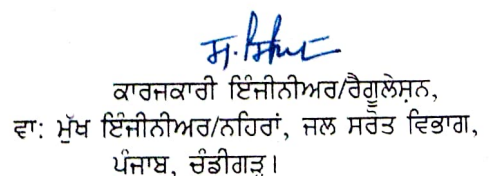 ਕਾਰਜਕਾਰੀ ਇੰਜੀਨੀਅਰ/ਰੈਗੂਲੇਸ਼ਨ,
ਵਾ: ਮੁੱਖ ਇੰਜੀਨੀਅਰ/ਨਹਿਰਾਂ, ਜਲ ਸਰੋਤ ਵਿਭਾਗ,
ਪੰਜਾਬ, ਚੰਡੀਗੜ੍ਹ।